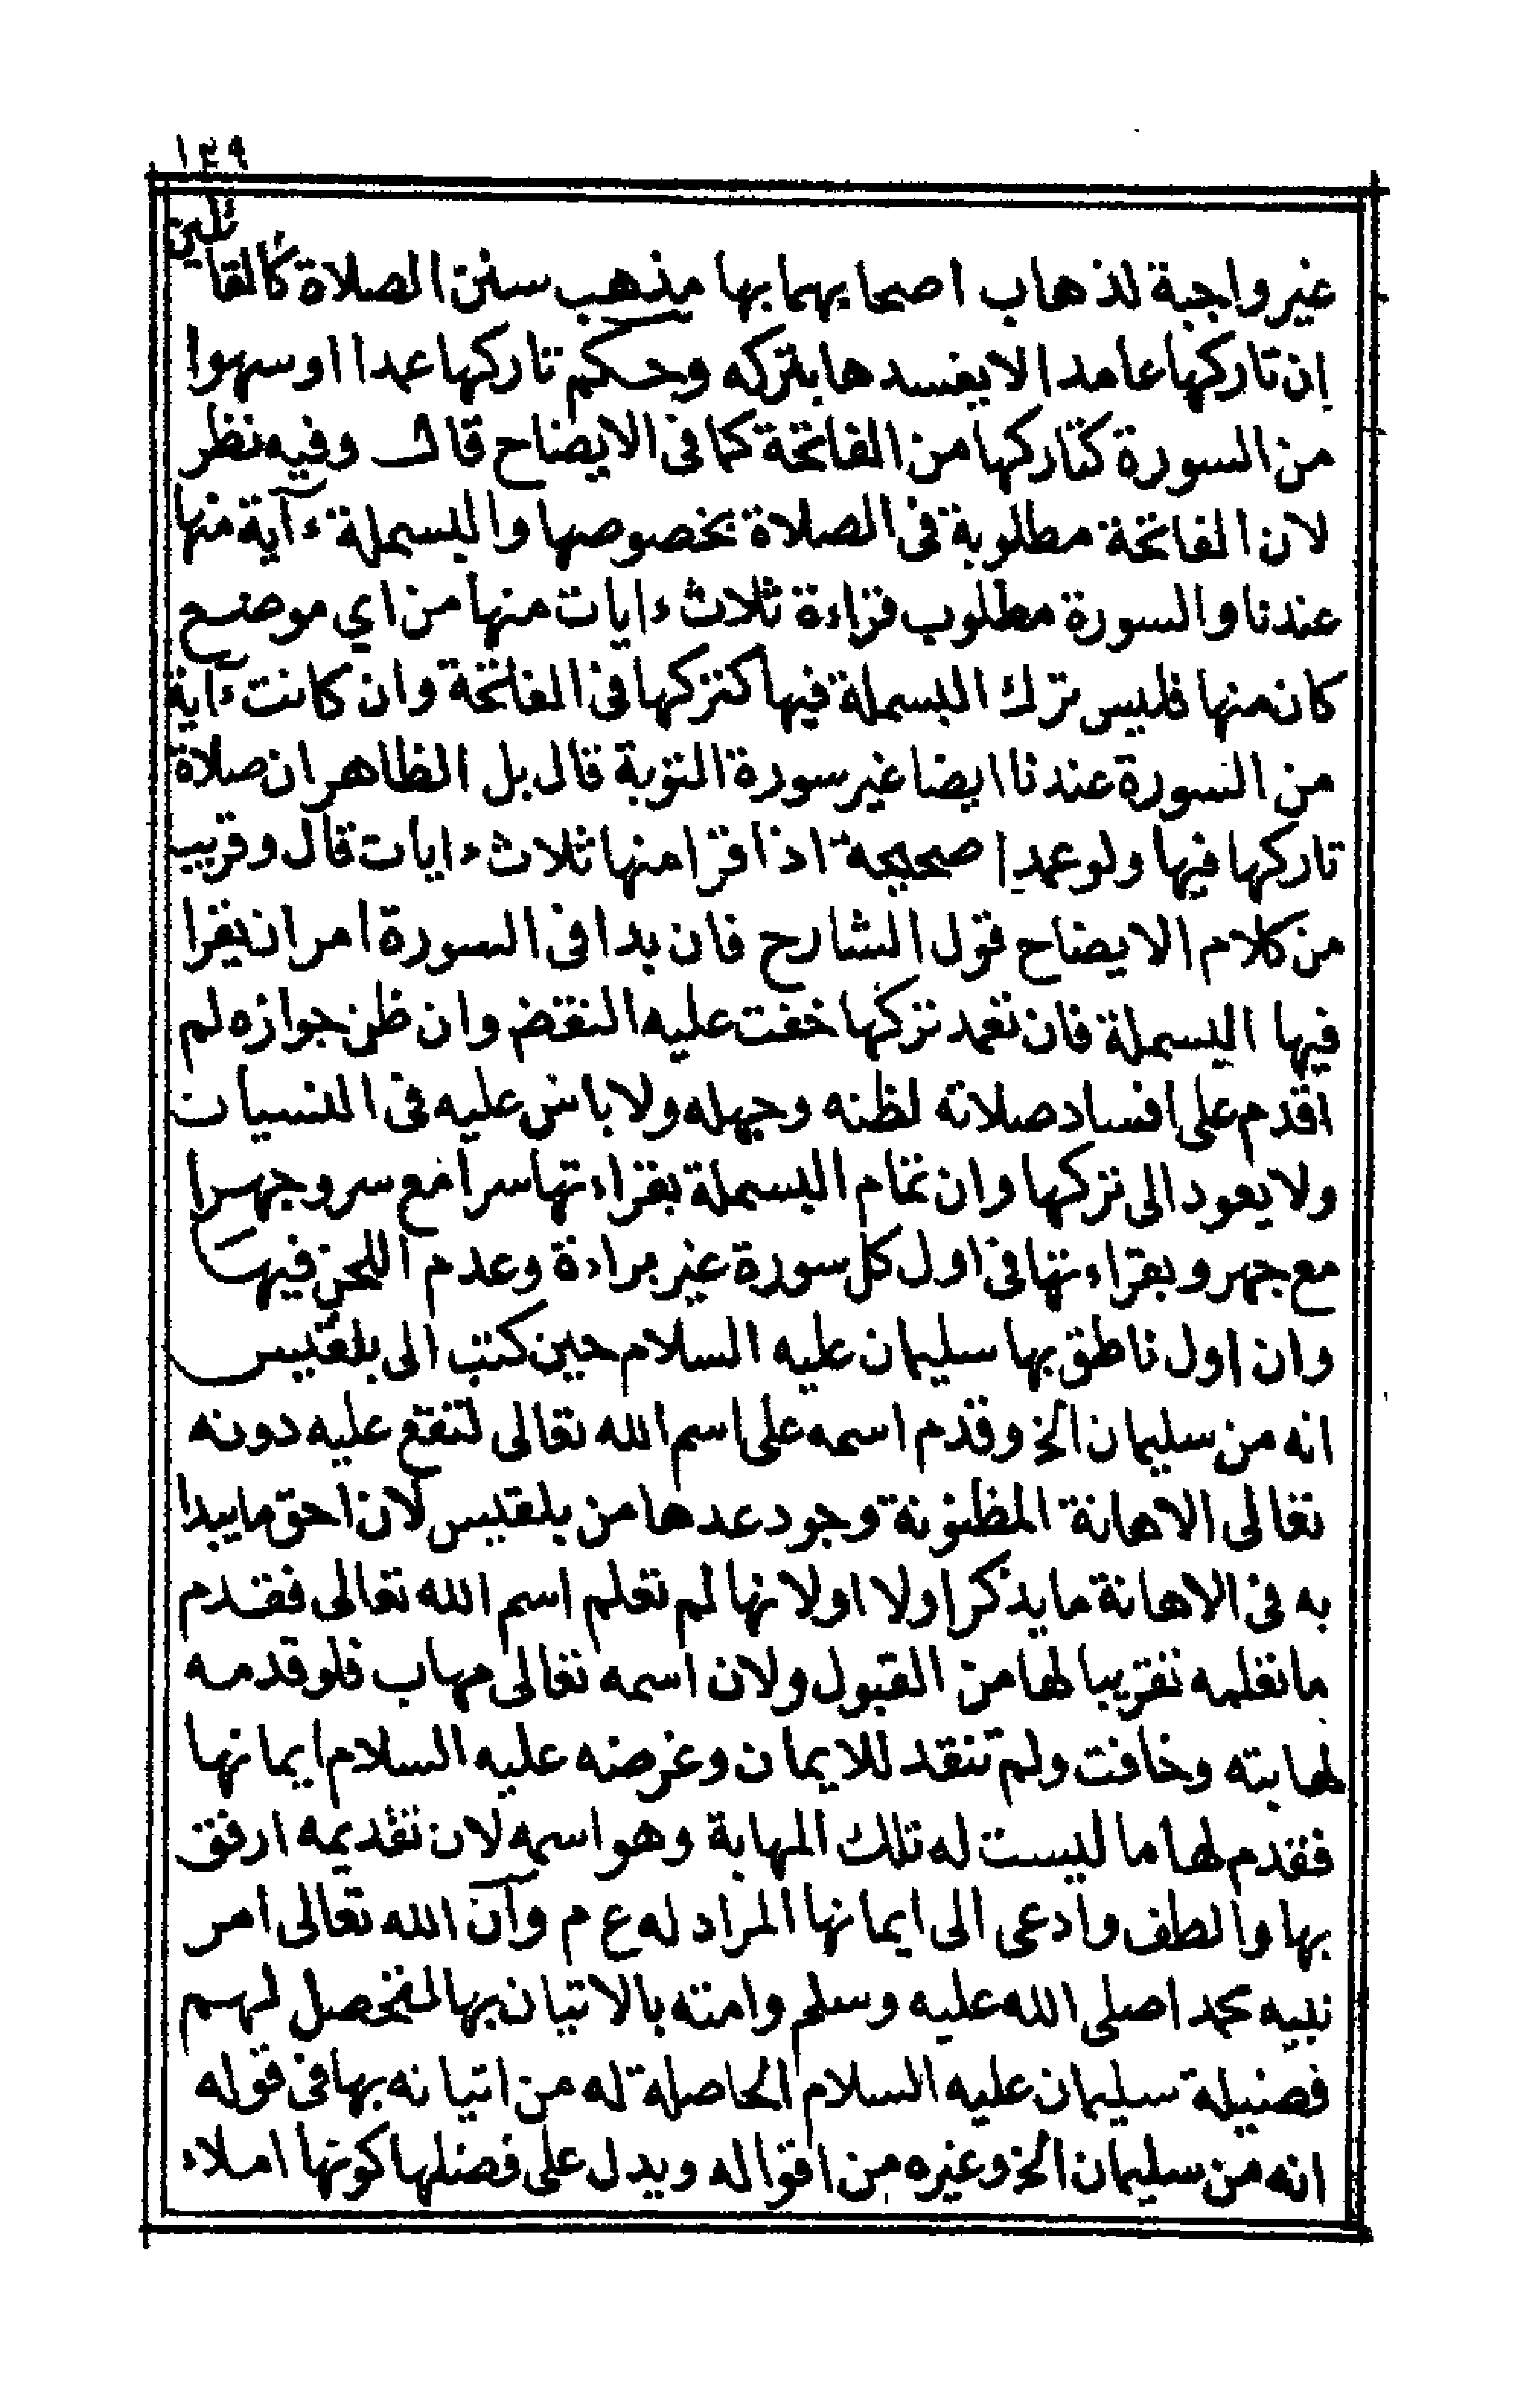 ١٣٩
غير واجبة لذهاب اصحابهما بها مذهب سنن الصلاة كالقائلين
إن تاركها عامدا لا يفسدها بتركه وحكم تاركها عمدا او سهوا
من السورة كتاركها من الفاتحة كما فى الايضاح قال وفيه نظر
لان الفاتحة مطلوبة فى الصلاة بخصوصها والبسملة ءآية منها
عندنا والسورة مطلوب قراءة ثلاث ءايات منها من اي موضع
كان منها فليس ترك البسملة فيها كتركها فى الفاتحة وان كانت ءآية
من السورة عندنا ايضا غير سورة التوبة قال بل الظاهر ان صلاة
تاركها فيها ولو عمدا صحيحة اذا قرا منها ثلاث ءايات قال وقريب
من كلام الايضاح قول الشارح فان بدا فى السورة امر ان يقرا
فيها البسملة فان تعمد تركها خفت عليه النقض وان ظن جوازه لم
اقدم على افساد صلاته لظنه وجهله ولا باس عليه فى النسيان
ولا يعود الى تركها وان تمام البسملة بقراءتها سرا مع سر وجهرا
مع جهر وبقراءتها فى اول كل سورة غير براءة وعدم اللحن فيها
وان اول ناطق بها سليمان عليه السلام حين كتب الى بلقيس
انه من سليمان الخ وقدم اسمه على اسم الله تعالى لتقع عليه دونه
تعالى الاهانة المظنونة وجود عدها من بلقيس لان احق ما يبدا
به فى الاهانة ما يذكر اولا او لانها لم تعلم اسم الله تعالى فقدم
ما تعلمه تقريبا لها من القبول ولان اسمه تعالى مهاب فلو قدمه
لهابته وخافت ولم تنقد للايمان وغرضه عليه السلام ايمانها
فقدم لها ما ليست له تلك المهابة وهو اسمه لان تقديمه ارفق
بها والطف وادعى الى ايمانها المراد له ع م وآن الله تعالى امر
نبيه محمدا صلى الله عليه وسلم وامته بالاتيان بها لتحصل لهم
فضيلة سليمان عليه السلام الحاصلة له من اتيانه بها فى قوله
انه من سليمان الخ وغيره من اقواله ويدل على فضلها كونها املاء